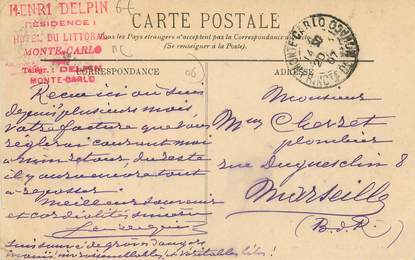 HENRI DELPIN
RÉSIDENCE :
HÔTEL DU LITTORAL
MONTE-CARLO
Télégr. : DELPIN
MONTE-CARLO
CARTE POSTALE
Tous les Pays étrangers n'acceptent pas la Correspondance
(Se renseigner à la Poste)
CORRESPONDANCE
ADRESSE
MONTE CARLO
Reçu ici où suis
depuis plusieurs mois
votre facture que vous
réglerai courant mai
à mon retour, du reste
il y aura encore tout
à reposer
Meilleur souvenir
et cordialités sincères
Monsieur
Cherret
plombier
rue Duguesclin 8
Marseille
(B.d.R.)